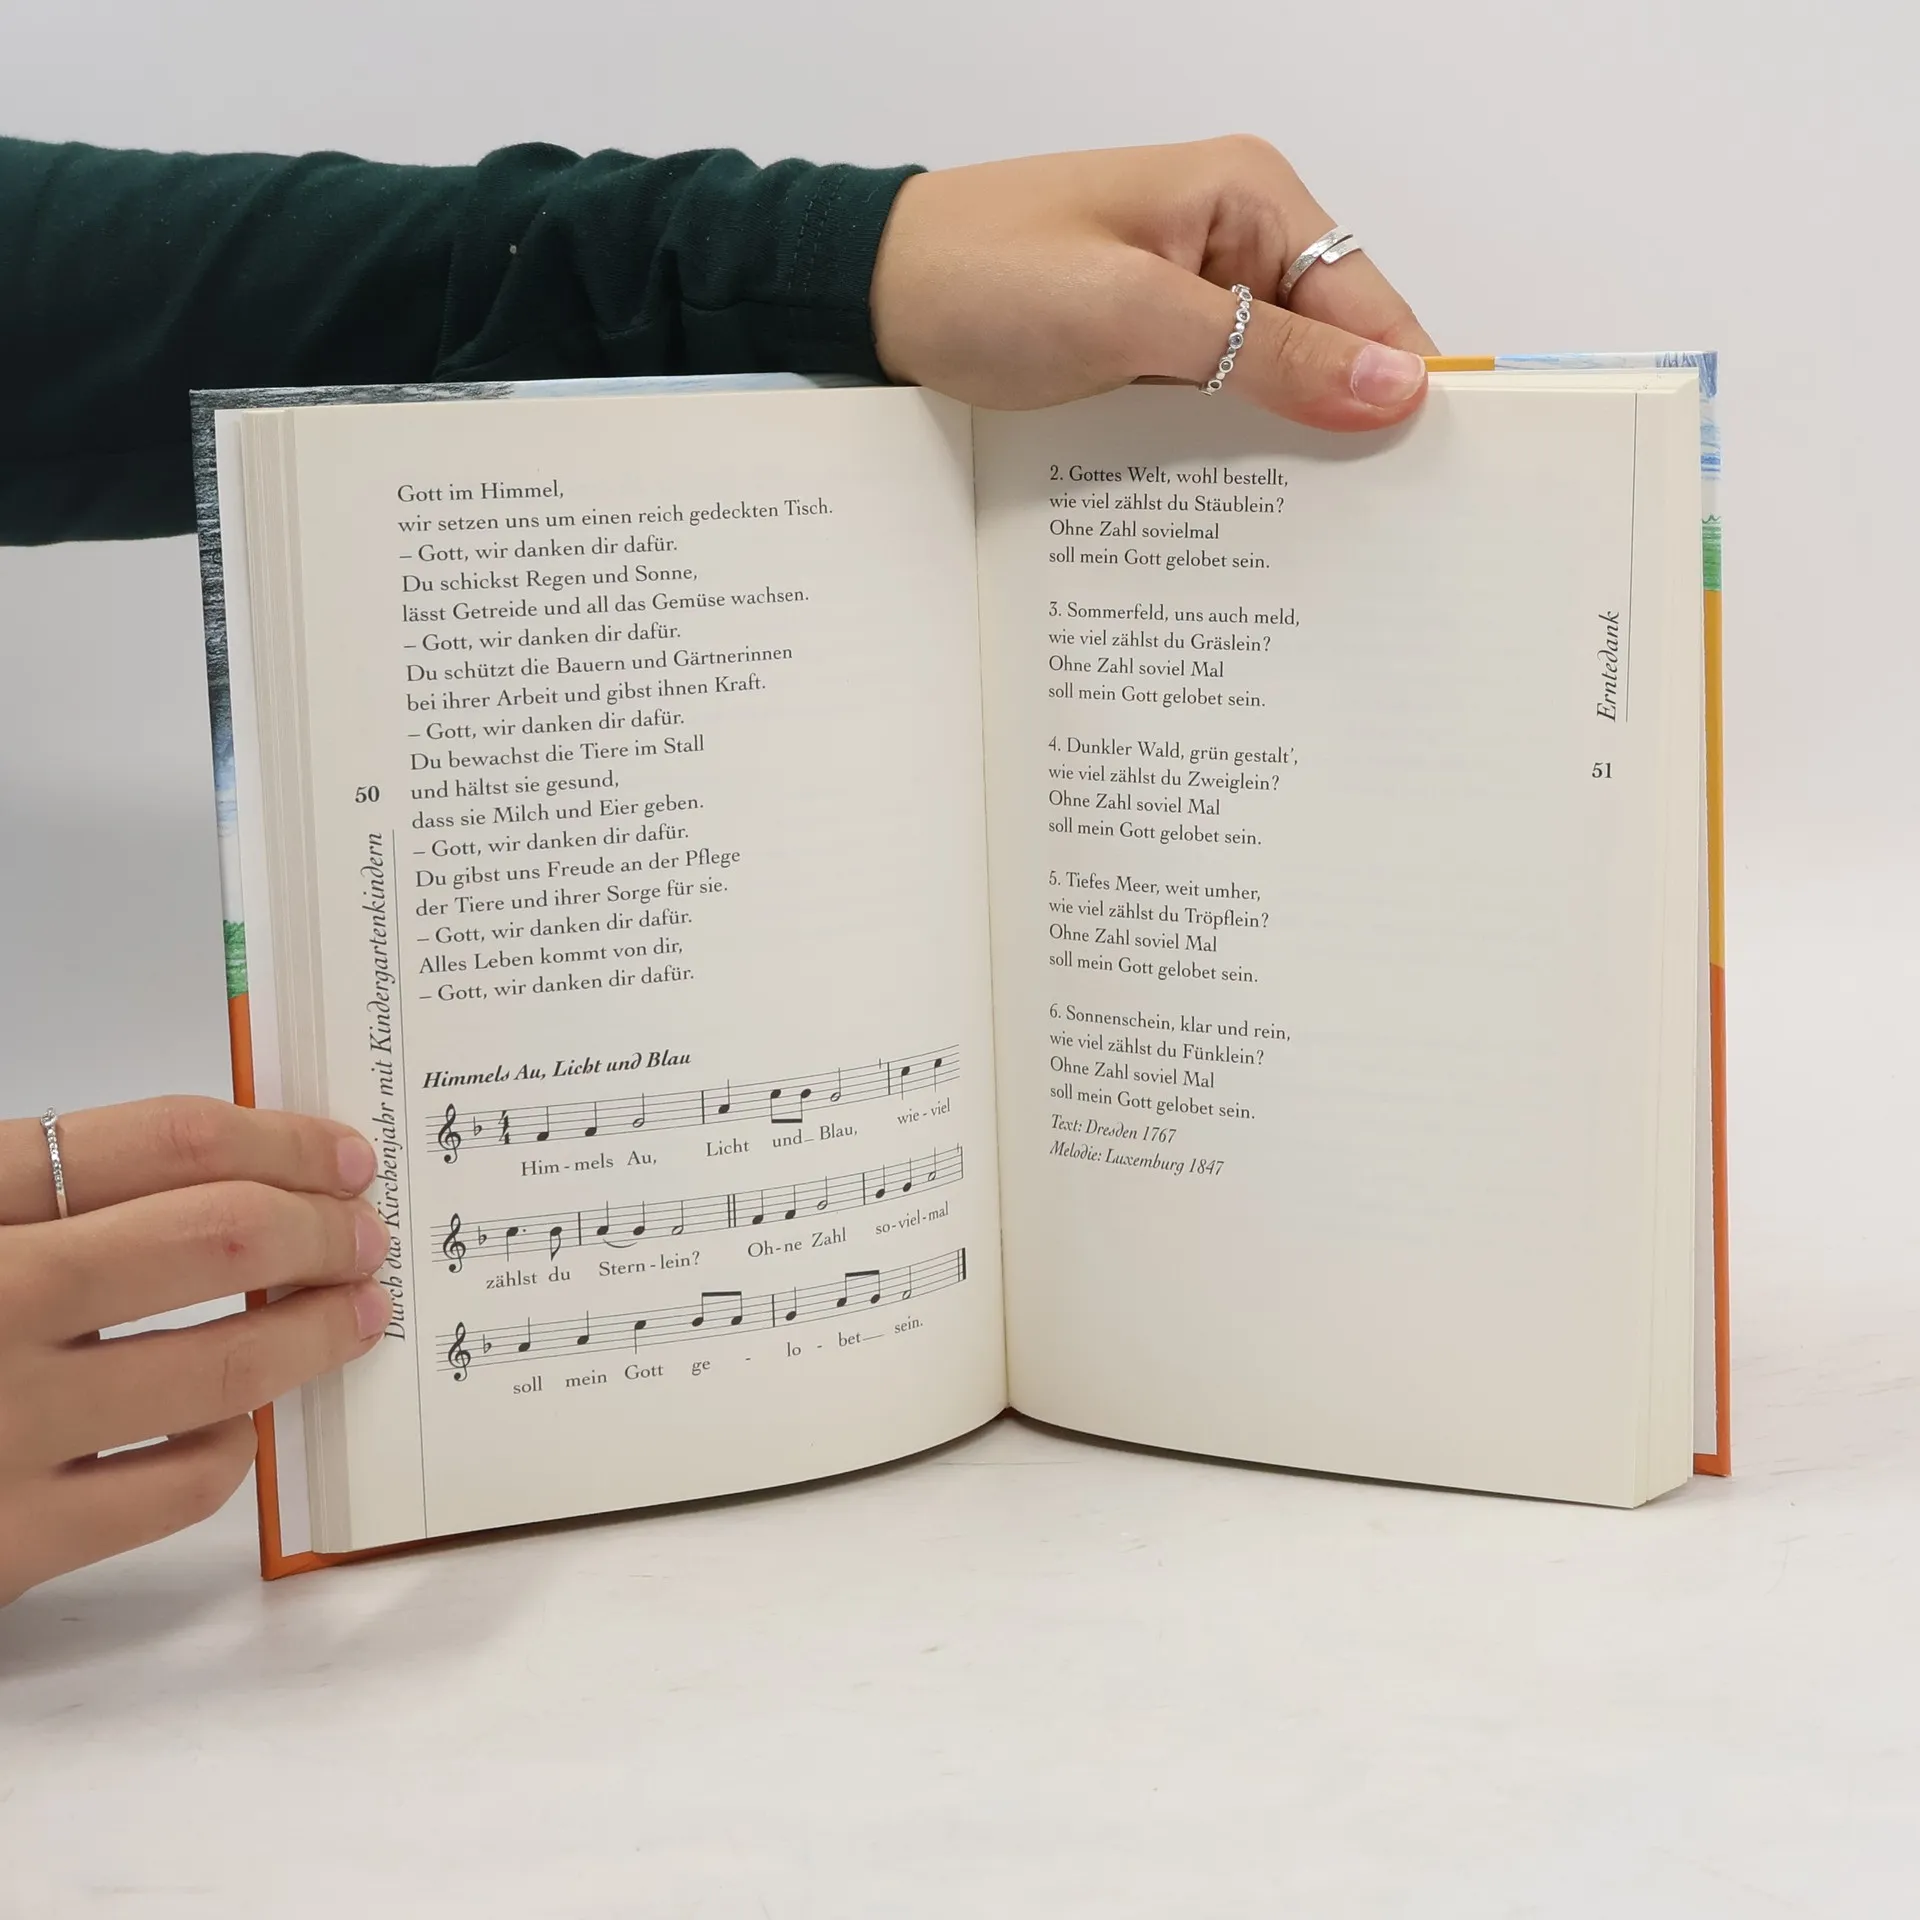 Gott im Himmel,
wir setzen uns um einen reich gedeckten Tisch.
– Gott, wir danken dir dafür.
Du schickst Regen und Sonne,
lässt Getreide und all das Gemüse wachsen.
– Gott, wir danken dir dafür.
Du schützt die Bauern und Gärtnerinnen
bei ihrer Arbeit und gibst ihnen Kraft.
– Gott, wir danken dir dafür.
Du bewachst die Tiere im Stall
und hältst sie gesund,
dass sie Milch und Eier geben.
– Gott, wir danken dir dafür.
Du gibst uns Freude an der Pflege
der Tiere und ihrer Sorge für sie.
– Gott, wir danken dir dafür.
Alles Leben kommt von dir,
– Gott, wir danken dir dafür.
50
Durch das Kirchenjahr mit Kindergartenkindern
Himmels Au, Licht und Blau
4
4
Him - mels Au, Licht und Blau, wie - viel
zählst du Stern - lein? Oh - ne Zahl so - viel - mal
soll mein Gott ge - lo - bet sein.
2. Gottes Welt, wohl bestellt,
wie viel zählst du Stäublein?
Ohne Zahl sovielmal
soll mein Gott gelobet sein.
3. Sommerfeld, uns auch meld,
wie viel zählst du Gräslein?
Ohne Zahl soviel Mal
soll mein Gott gelobet sein.
4. Dunkler Wald, grün gestalt’,
wie viel zählst du Zweiglein?
Ohne Zahl soviel Mal
soll mein Gott gelobet sein.
5. Tiefes Meer, weit umher,
wie viel zählst du Tröpflein?
Ohne Zahl soviel Mal
soll mein Gott gelobet sein.
6. Sonnenschein, klar und rein,
wie viel zählst du Fünklein?
Ohne Zahl soviel Mal
soll mein Gott gelobet sein.
Text: Dresden 1767
Melodie: Luxemburg 1847
Erntedank
51